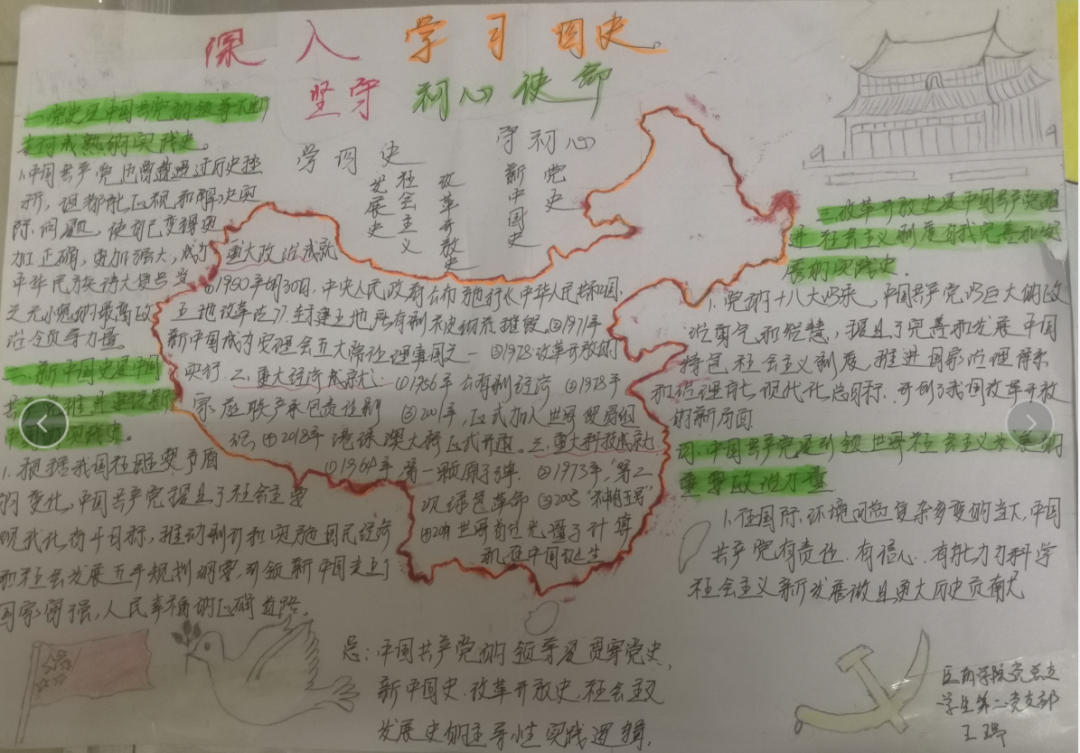 深入学习四史
坚守初心使命
一、党史是中国共产党的领导不断
走向成熟的实践史。
1.中国共产党历曾遭遇过历史挫
折,但都能正视和解决实
际问题,使自己变得更
加正确,更加强大,成为
中华民族伟大复兴
无可比拟的最高政
治领导力量
二、新中国史是中国
实践史。
1.根据我国社会主要矛盾
的变化,中国共产党提出了社会主义
现代化奋斗目标,推动制订和实施国民经济
和社会发展五年规划纲要,引领新中国走上了
国家富强,人民幸福的正确道路。
学四史
守初心
党史
新中国史
改革开放史
社会主义
发展史
重大政治成就
①1950年6月30日,中央人民政府公布施行《中华人民共和国
土地改革法》,封建土地所有制被彻底摧毁 ②1971年
新中国成为安理会五大常任理事国之一 ③1978改革开放的
实行.二、重大经济成就:①1956年公有制经济 ②1978年
家庭联产承包责任制 ③2001年,正式加入世界贸易组
织,④2018年港珠澳大桥正式开通。三、重大科技成就
①1964年,第一颗原子弹 ②1973年,第二
次绿色革命 ③2003"神舟五号"
世界首台光量子计算
机在中国诞生
三、改革开放史是中国共产党推
进社会主义制度自我完善和发
展的实践史.
1.党的十八大以来,中国共产党以巨大的政
治勇气和智慧,提出了完善和发展中国
特色社会主义制度,推进国家治理体系
和治理能力现代化总目标,开创了我国改革开放
的新局面
四、中国共产党是引领世界社会主义发展的
重要政治力量
1.在国际环境日趋复杂多变的当下,中国
共产党有责任.有信心.有能力为科学
社会主义新发展做出更大历史贡献
总:中国共产党的领导是贯穿党史,
新中国史.改革开放史.社会主义
发展史的主导性实践逻辑.
医药学院党总支
学生第二党支部